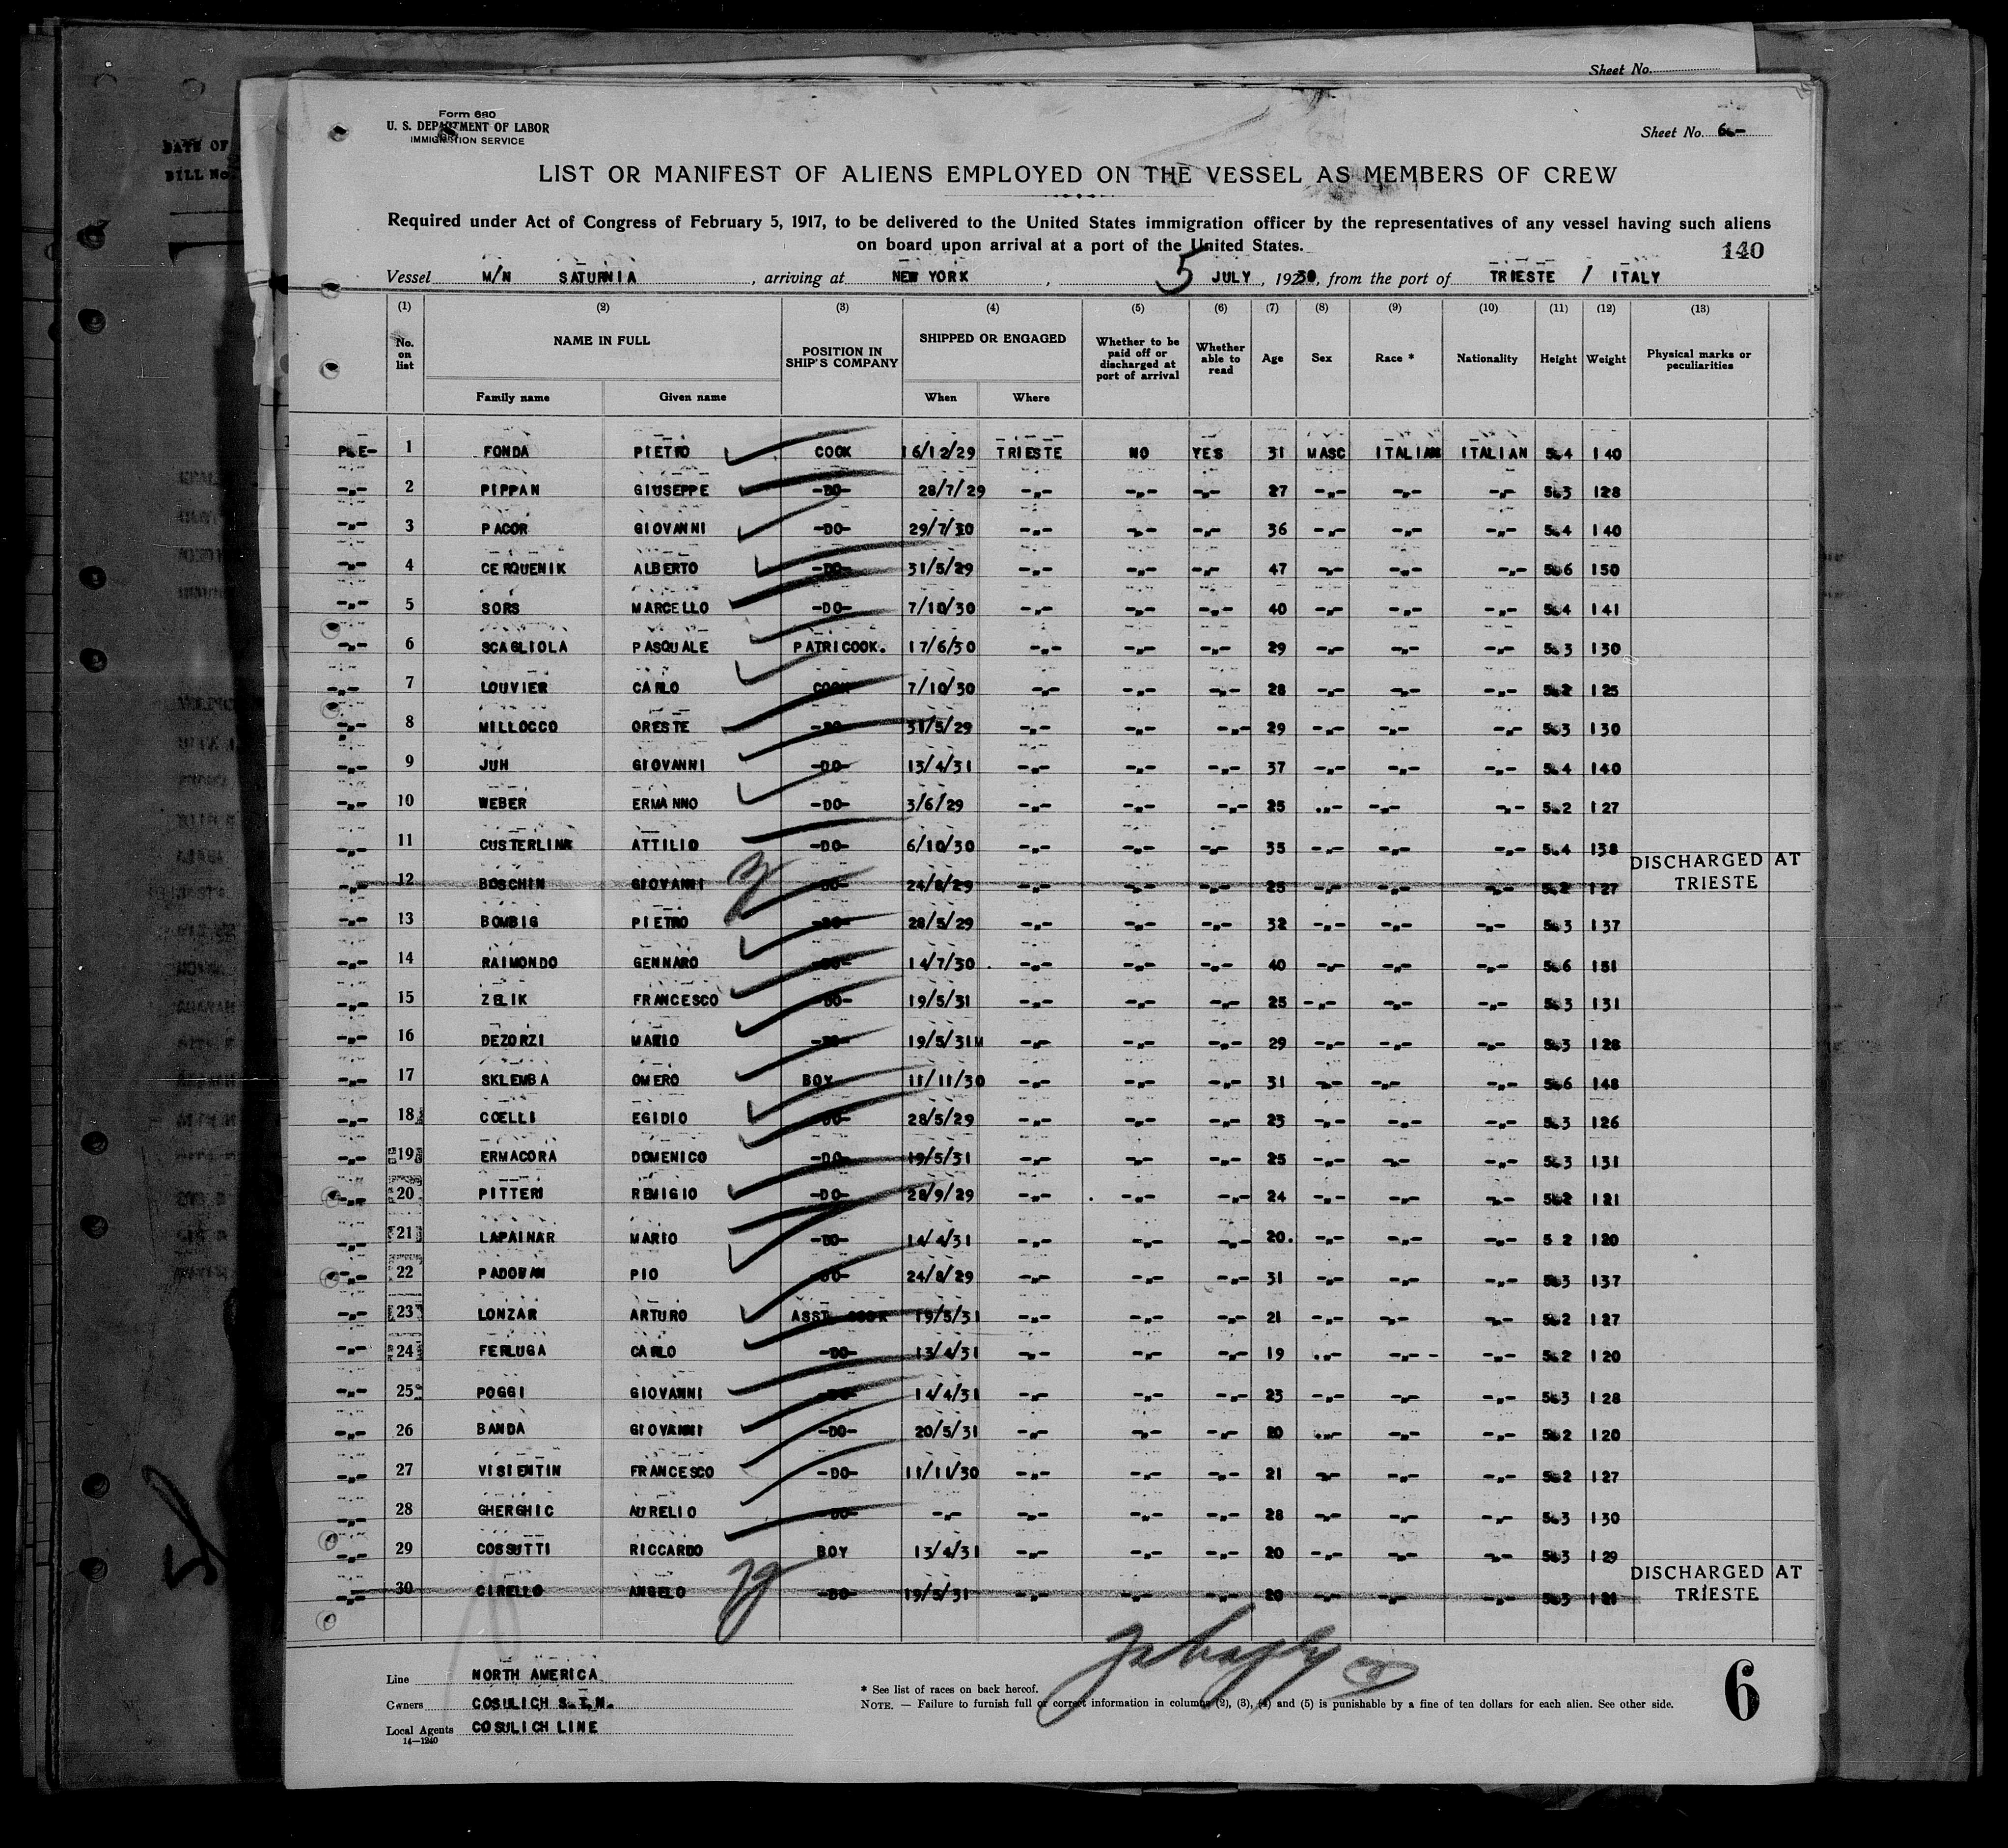 Sheet No.
Form 680
U. S. DEPARTMENT OF LABOR
IMMIGRATION SERVICE
Sheet No. 6.-
LIST OR MANIFEST OF ALIENS EMPLOYED ON THE VESSEL AS MEMBERS OF CREW
Required under Act of Congress of February 5, 1917, to be delivered to the United States immigration officer by the representatives of any vessel having such aliens
on board upon arrival at a port of the United States.
140
Vessel M/N SATURNIA, arriving at NEW YORK, 5 JULY, 19230, from the port of TRIESTE / ITALY
(1) (2) (3) (4) (5) (6) (7) (8) (9) (10) (11) (12) (13)
No. on list NAME IN FULL POSITION IN SHIP'S COMPANY SHIPPED OR ENGAGED Whether to be paid off or discharged at port of arrival Whether able to read Age Sex Race * Nationality Height Weight Physical marks or peculiarities
Family name Given name When Where
1 FONDA PIETRO COOK 16/12/29 TRIESTE NO YES 31 MASC ITALIAN ITALIAN 5.4 140
-"- 2 PIPPAN GIUSEPPE -DO- 28/7/29 -"- -"- -"- 27 -"- -"- -"- 5.3 128
-"- 3 PACOR GIOVANNI -DO- 29/7/30 -"- -"- -"- 36 -"- -"- -"- 5.4 140
-"- 4 CERQUENIK ALBERTO -DO- 31/5/29 -"- -"- -"- 47 -"- -"- -"- 5.6 150
-"- 5 SORS MARCELLO -DO- 7/10/30 -"- -"- -"- 40 -"- -"- -"- 5.4 141
-"- 6 SCAGLIOLA PASQUALE PATRICOOK. 17/6/30 -"- -"- -"- 29 -"- -"- -"- 5.3 130
-"- 7 LOUVIER CARLO COOK 7/10/30 -"- -"- -"- 28 -"- -"- -"- 5.2 125
-"- 8 MILLOCCO ORESTE -DO- 31/5/29 -"- -"- -"- 29 -"- -"- -"- 5.3 130
-"- 9 JUH GIOVANNI -DO- 13/4/31 -"- -"- -"- 37 -"- -"- -"- 5.4 140
-"- 10 WEBER ERMANNO -DO- 3/6/29 -"- -"- -"- 25 -"- -"- -"- 5.2 127
-"- 11 CUSTERLINK ATTILIO -DO- 6/10/30 -"- -"- -"- 35 -"- -"- -"- 5.4 138
-"- 12 BOSCHIN GIOVANNI -DO- 24/8/29 -"- -"- -"- 25 -"- -"- -"- 5.2 127 DISCHARGED AT TRIESTE
-"- 13 BOMBIG PIETRO -DO- 28/5/29 -"- -"- -"- 32 -"- -"- -"- 5.3 137
-"- 14 RAIMONDO GENNARO -DO- 14/7/30 -"- -"- -"- 40 -"- -"- -"- 5.6 151
-"- 15 ZELIK FRANCESCO -DO- 19/5/31 -"- -"- -"- 25 -"- -"- -"- 5.3 131
-"- 16 DEZORZI MARIO -DO- 19/5/31 -"- -"- -"- 29 -"- -"- -"- 5.3 128
-"- 17 SKLEMBA OMERO BOY 11/11/30 -"- -"- -"- 31 -"- -"- -"- 5.6 148
-"- 18 COELLI EGIDIO -DO- 28/5/29 -"- -"- -"- 23 -"- -"- -"- 5.3 126
-"- 19 ERMACORA DOMENICO -DO- 19/5/31 -"- -"- -"- 25 -"- -"- -"- 5.3 131
-"- 20 PITTERI REMIGIO -DO- 28/9/29 -"- -"- -"- 24 -"- -"- -"- 5.2 121
-"- 21 LAPAINAR MARIO -DO- 14/4/31 -"- -"- -"- 20. -"- -"- -"- 5 2 120
-"- 22 PADOVAN PIO -DO- 24/8/29 -"- -"- -"- 31 -"- -"- -"- 5.3 137
-"- 23 LONZAR ARTURO ASST. COOK 19/5/31 -"- -"- -"- 21 -"- -"- -"- 5.2 127
-"- 24 FERLUGA CARLO -DO- 13/4/31 -"- -"- -"- 19 -"- -"- -"- 5.2 120
-"- 25 POGGI GIOVANNI -DO- 14/4/31 -"- -"- -"- 23 -"- -"- -"- 5.3 128
-"- 26 BANDA GIOVANNI -DO- 20/5/31 -"- -"- -"- 20 -"- -"- -"- 5.2 120
-"- 27 VISIENTIN FRANCESCO -DO- 11/11/30 -"- -"- -"- 21 -"- -"- -"- 5.2 127
-"- 28 GHERGHIC AURELIO -DO- -"- -"- -"- -"- 28 -"- -"- -"- 5.3 130
-"- 29 COSSUTTI RICCARDO BOY 13/4/31 -"- -"- -"- 20 -"- -"- -"- 5.3 129
-"- 30 CIRELLO ANGELO -DO- 19/5/31 -"- -"- -"- 20 -"- -"- -"- 5.3 121 DISCHARGED AT TRIESTE
Line NORTH AMERICA
Owners COSULICH S.T.N.
Local Agents COSULICH LINE
14—1240
* See list of races on back hereof.
NOTE. — Failure to furnish full or correct information in columns (2), (3), (4) and (5) is punishable by a fine of ten dollars for each alien. See other side.
6